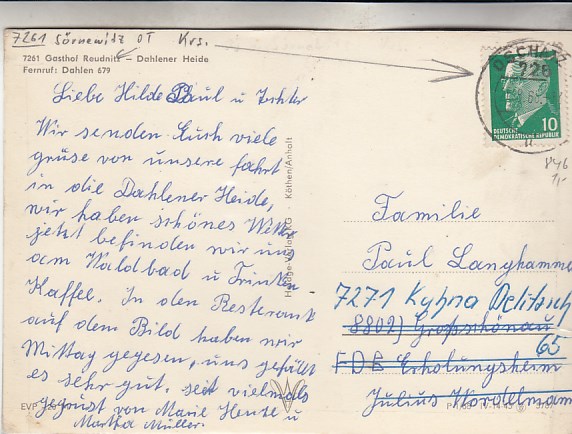 7261 Sörnewitz OT Krs.
7261 Gasthof Reudnitz – Dahlener Heide
Fernruf: Dahlen 679
Liebe Hilde Paul u Tochter
Wir senden Euch viele
grüse von unsere fahrt
in die Dahlener Heide,
wir haben schönes Wetter
jetzt befinden wir uns
am Waldbad u Trinken
Kaffee. In den Resterant
auf dem Bild haben wir
Mittag gegesen, uns gefällt
es sehr gut. seit vielmals
gegrüst von Marie Hente u
Martha Müller.
EVP
Köthen/Anhalt
OSCHATZ
726
10
DEUTSCHE
DEMOKRATISCHE REPUBLIK
846
1,-
Familie
Paul Langhamme
7271 Kyhna Delitzsch
8802) Großschönau
65
FDB Erholungsheim
Julius Wordelmann